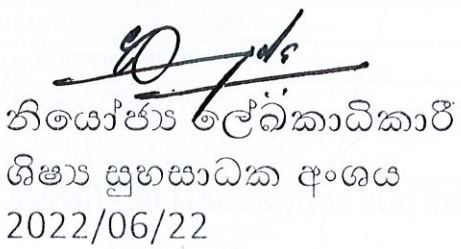 නියෝජ්‍ය ලේඛකාධිකාරී
ශිෂ්‍ය සුභසාධක අංශය
2022/06/22